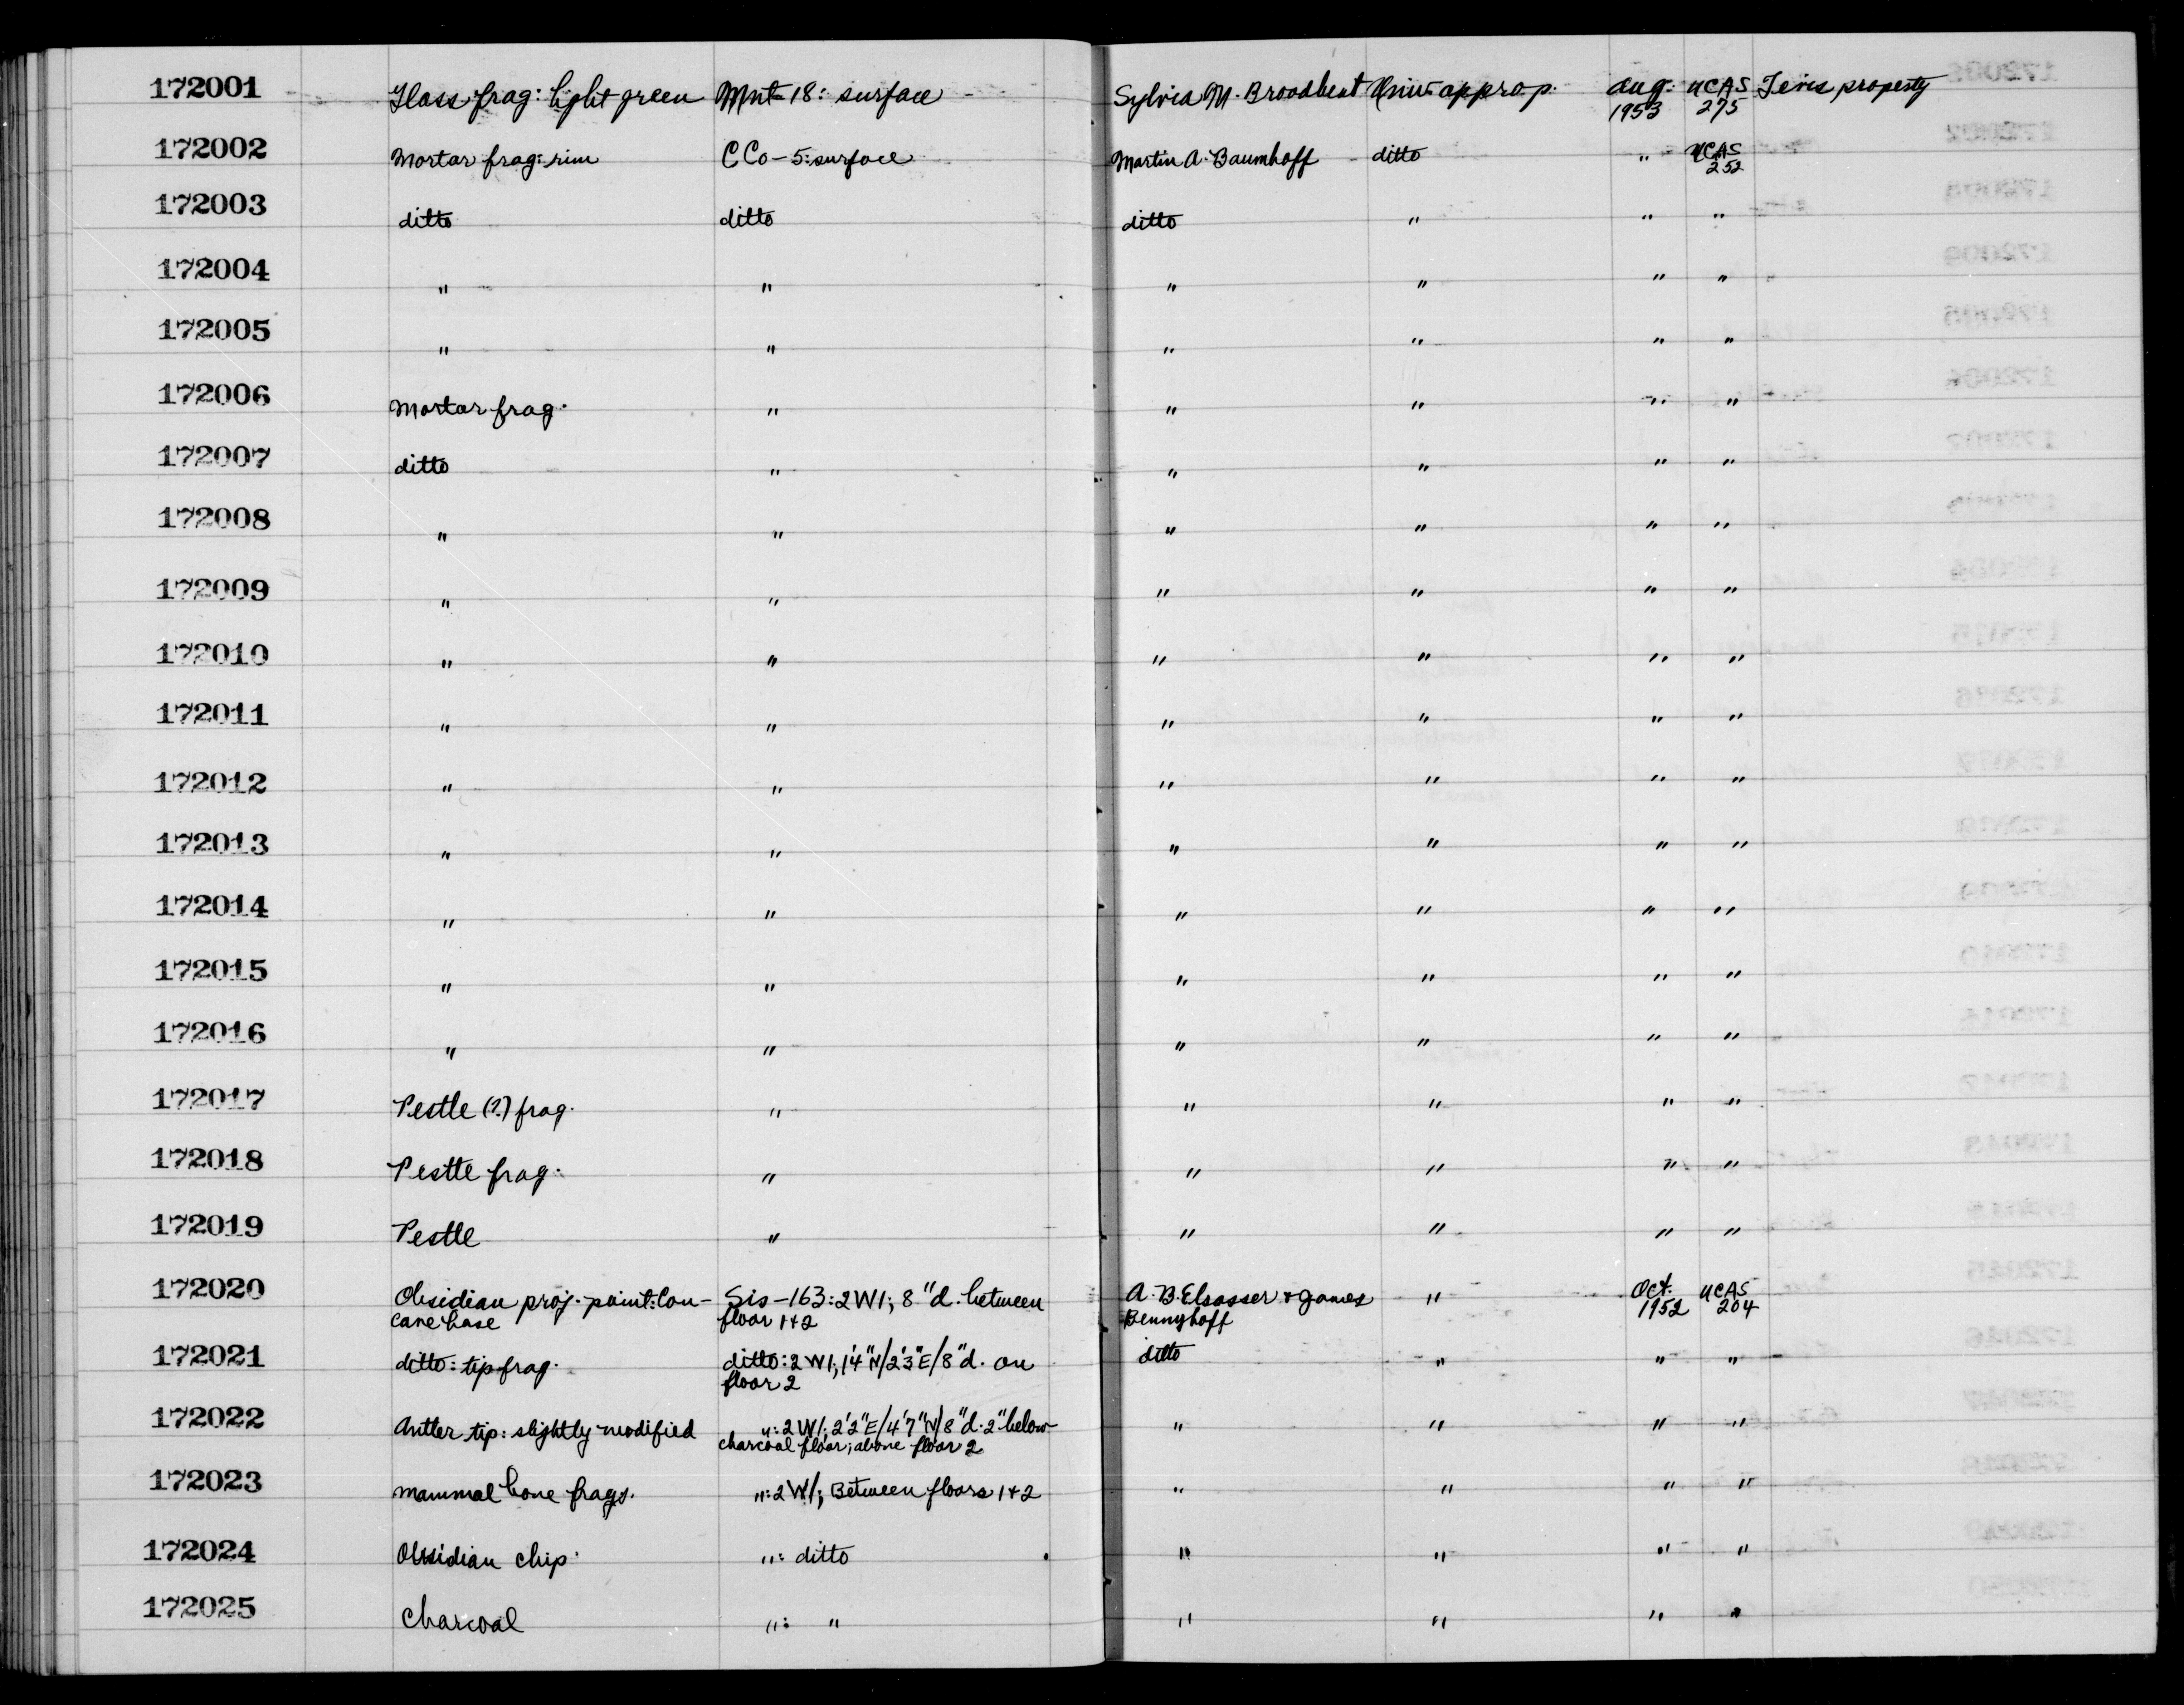 172001 Glass frag: light green Mnt-18: surface Sylvia M. Broadbent Univ. approp. Aug. 1953 UCAS 275 Tevis property
172002 Mortar frag: rim CCo-5: surface Martin A. Baumhoff ditto " UCAS 252
172003 ditto ditto ditto " " "
172004 " " " " " "
172005 " " " " " "
172006 Mortar frag. " " " " "
172007 ditto " " " " "
172008 " " " " " "
172009 " " " " " "
172010 " " " " " "
172011 " " " " " "
172012 " " " " " "
172013 " " " " " "
172014 " " " " " "
172015 " " " " " "
172016 " " " " " "
172017 Pestle (?) frag. " " " " "
172018 Pestle frag. " " " " "
172019 Pestle " " " " "
172020 Obsidian proj. point: Con- Sis-163: 2W1; 8"d. between A. B. Elsasser & James " Oct. UCAS
cave base floor 1+2 Bennyhoff 1952 204
172021 ditto: tip frag. ditto: 2W1; 1'4"N/2'3"E/8"d. on ditto " " "
floor 2
172022 Antler tip: slightly modified ": 2W1; 2'2"E/4'7"N/8"d. 2" below " " " "
charcoal floor; above floor 2
172023 Mammal bone frags. ": 2W1; Between floors 1+2 " " " "
172024 Obsidian chip. ": ditto " " " "
172025 Charcoal ": " " " " "